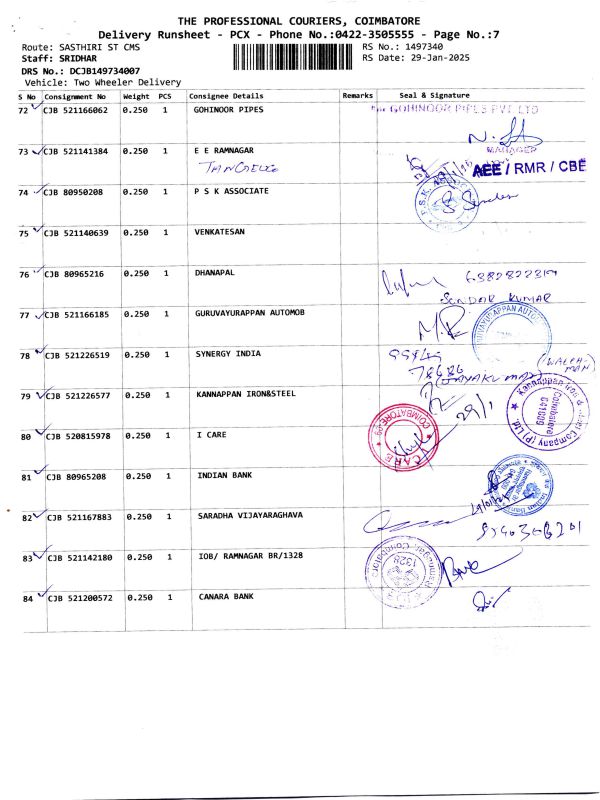 THE PROFESSIONAL COURIERS, COIMBATORE
Delivery Runsheet - PCX - Phone No.:0422-3505555 - Page No.:7
Route: SASTHIRI ST CMS RS No.: 1497340
Staff: SRIDHAR RS Date: 29-Jan-2025
DRS No.: DCJB149734007
Vehicle: Two Wheeler Delivery
S No Consignment No Weight PCS Consignee Details Remarks Seal & Signature
72 CJB 521166062 0.250 1 GOHINOOR PIPES For GOHINOOR PIPES PVT LTD
MANAGER
73 CJB 521141384 0.250 1 E E RAMNAGAR
TANGEDCO AEE / RMR / CBE
74 CJB 80950208 0.250 1 P S K ASSOCIATE
75 CJB 521140639 0.250 1 VENKATESAN
76 CJB 80965216 0.250 1 DHANAPAL
SENDAR KUMAR
77 CJB 521166185 0.250 1 GURUVAYURAPPAN AUTOMOB
GURUVAYURAPPAN AUTOMOB
78 CJB 521226519 0.250 1 SYNERGY INDIA
78686
(JAYAKUMAR)
79 CJB 521226577 0.250 1 KANNAPPAN IRON&STEEL 29/1
Kannappan Iron & Steel Company (P) Ltd.
Coimbatore
641009
80 CJB 520815978 0.250 1 I CARE
I CARE COIMBATORE-9
81 CJB 80965208 0.250 1 INDIAN BANK
82 CJB 521167883 0.250 1 SARADHA VIJAYARAGHAVA
83 CJB 521142180 0.250 1 IOB/ RAMNAGAR BR/1328
Ramnagar, Coimbatore
1328
84 CJB 521200572 0.250 1 CANARA BANK